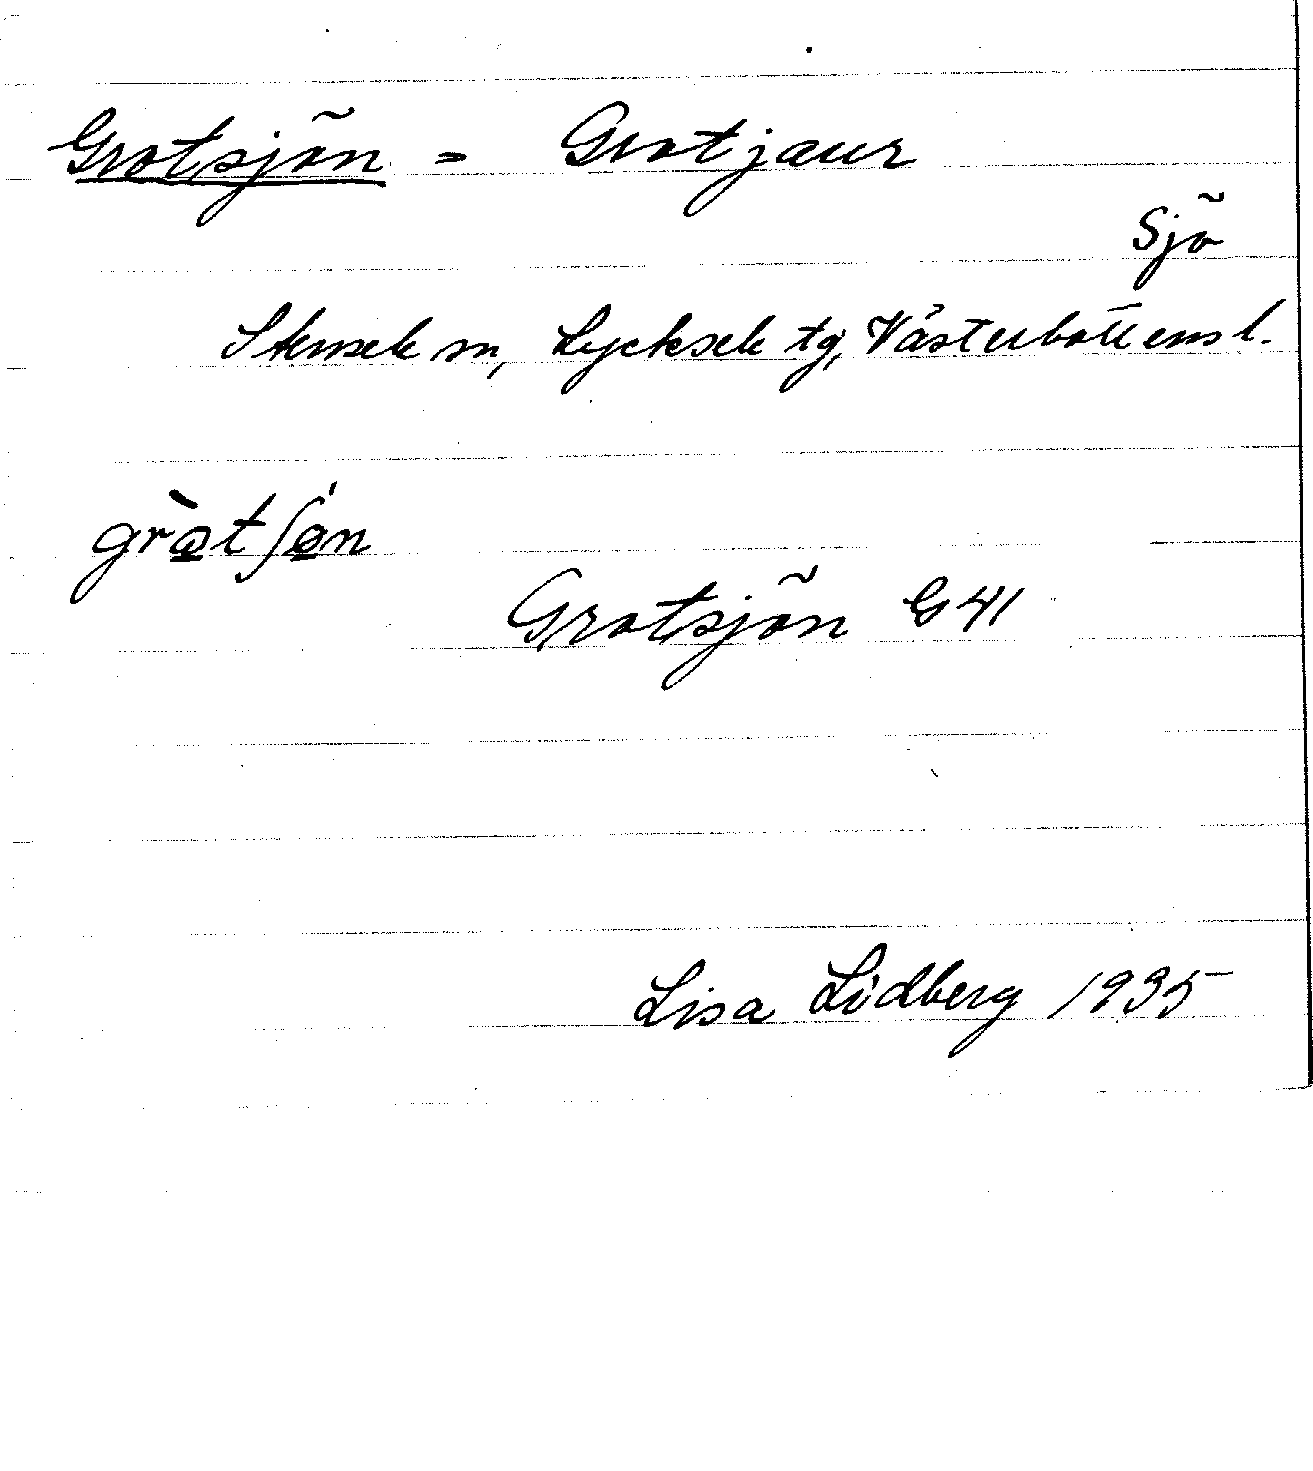 Grotsjön = Grotjaur
Sjö
Stensele sn, Lycksele tg, Västerbottens l.
grò̱tʃǿ̱n
Grotsjön G 41
Lisa Lidberg 1935